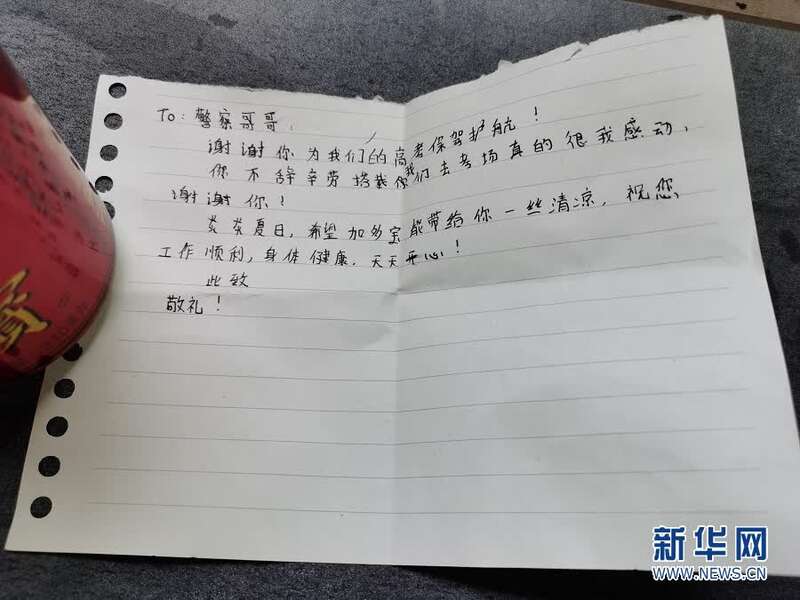 To：警察哥哥，
谢谢你为我们的高考保驾护航！
你不辞辛劳搭载我们去考场真的很我感动，
谢谢你！
炎炎夏日，希望加多宝能带给你一些清凉，祝您
工作顺利，身体健康，天天开心！
此致
敬礼！
新华网
WWW.NEWS.CN